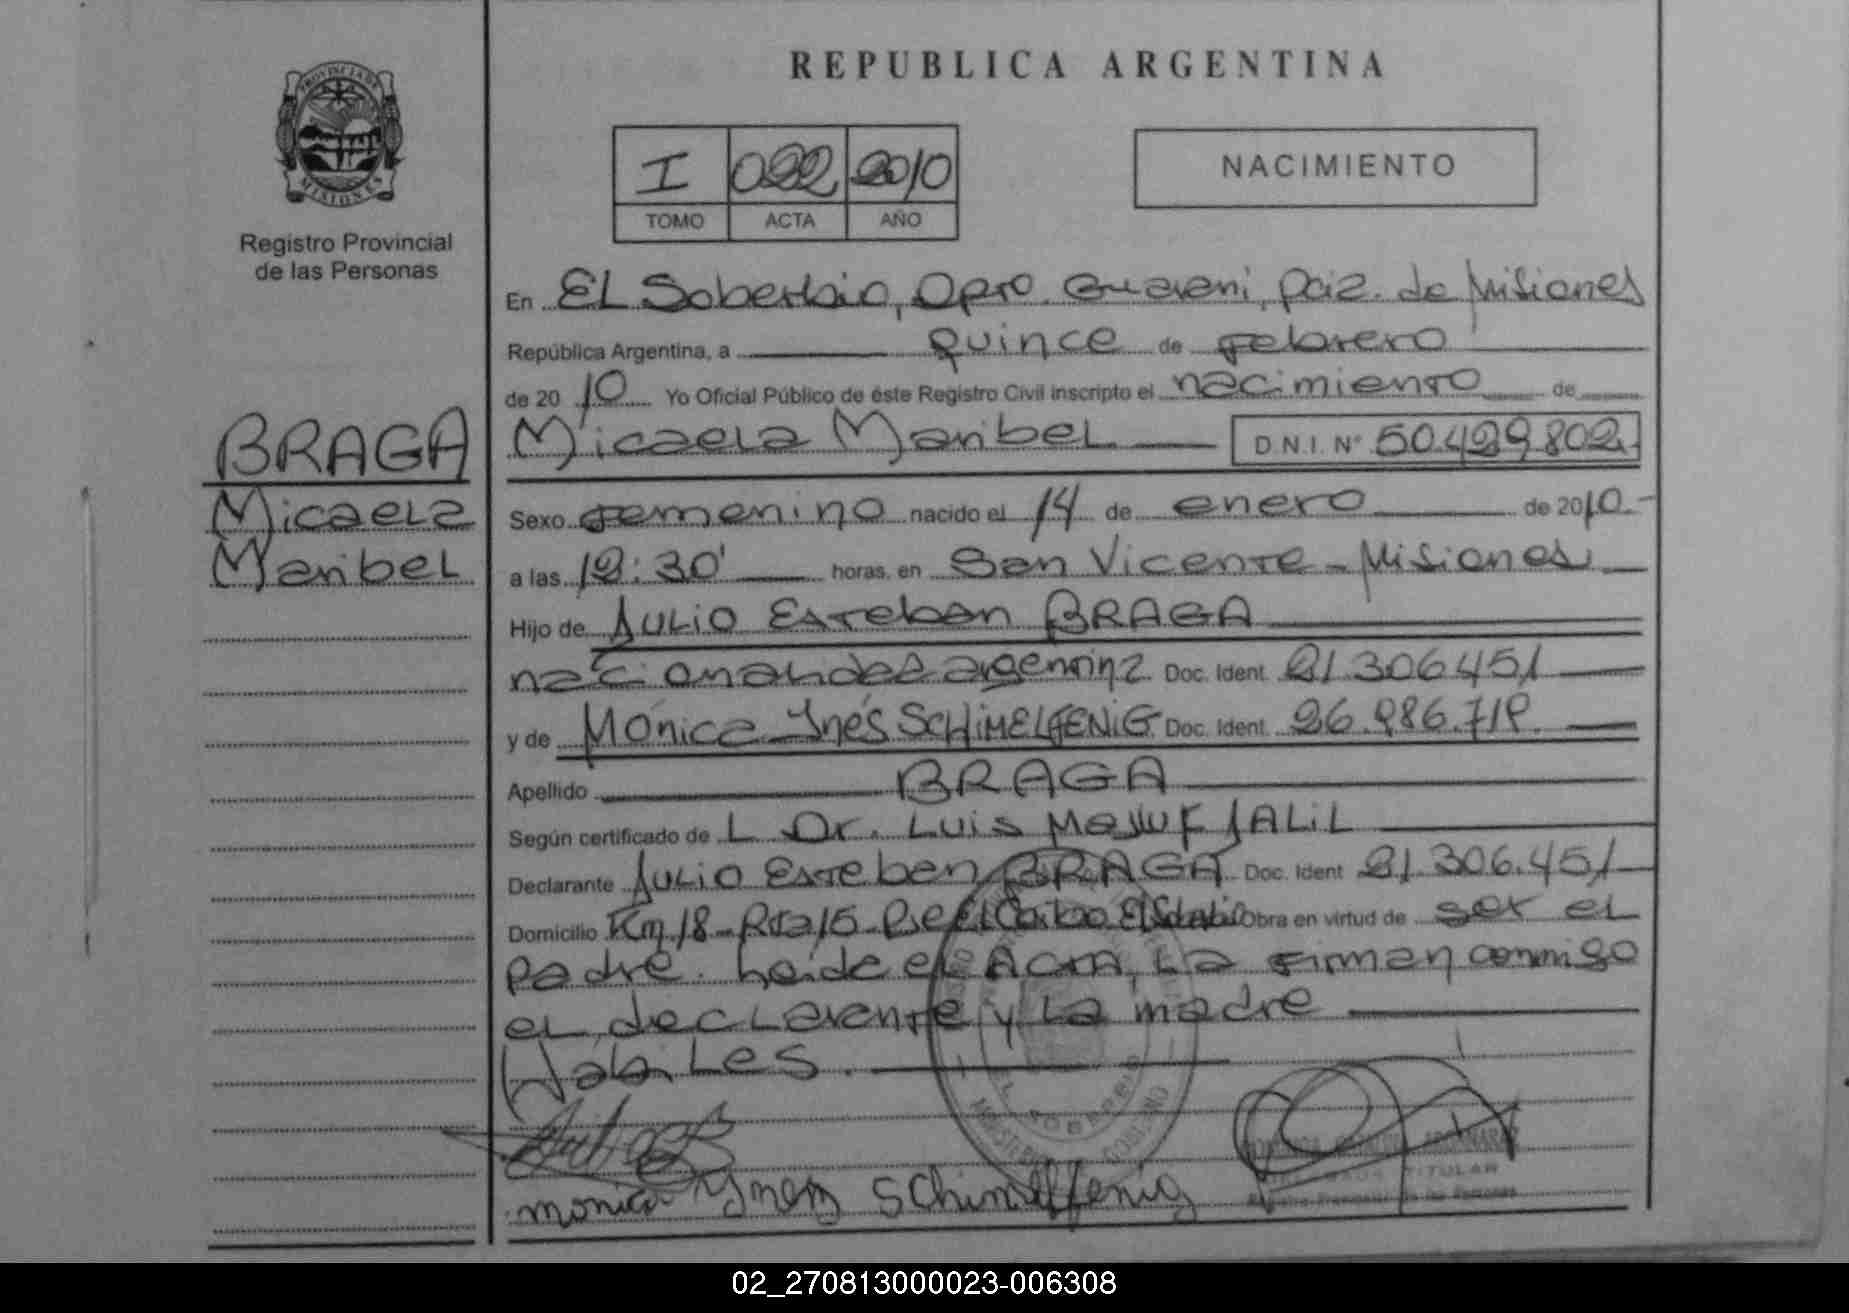 REPUBLICA ARGENTINA
PROVINCIA DE
MISIONES
Registro Provincial
de las Personas
I 022 2010
TOMO ACTA AÑO
NACIMIENTO
BRAGA
Micaela
Maribel
En EL Soberbio, Dpto. Guarani, Pcia. de Misiones
República Argentina, a quince de febrero
de 20 10 Yo Oficial Público de éste Registro Civil inscripto el nacimiento de
Micaela Maribel D.N.I. Nº 50.429.802.
Sexo femenino nacido el 14 de enero de 2010.-
a las 12:30' horas, en San Vicente - Misiones
Hijo de Julio Esteban BRAGA
argentina Doc. Ident. 21.306.451
y de Mónica Inés SCHIMELFENIG Doc. Ident. 26.986.718.
Apellido BRAGA
Según certificado de L Dr. Luis JALIL
Declarante Julio Esteban BRAGA Doc. Ident 21.306.451
Domicilio Km 18 - Rta 15 El Soberbio Obra en virtud de ser el
padre. Leida el ACTA, La firman conmigo
el declarante y La madre
Habiles.
EL SOBERBIO
monica Ynez Schimelfenig
TITULAR
Registro Provincial de las Personas
02_270813000023-006308